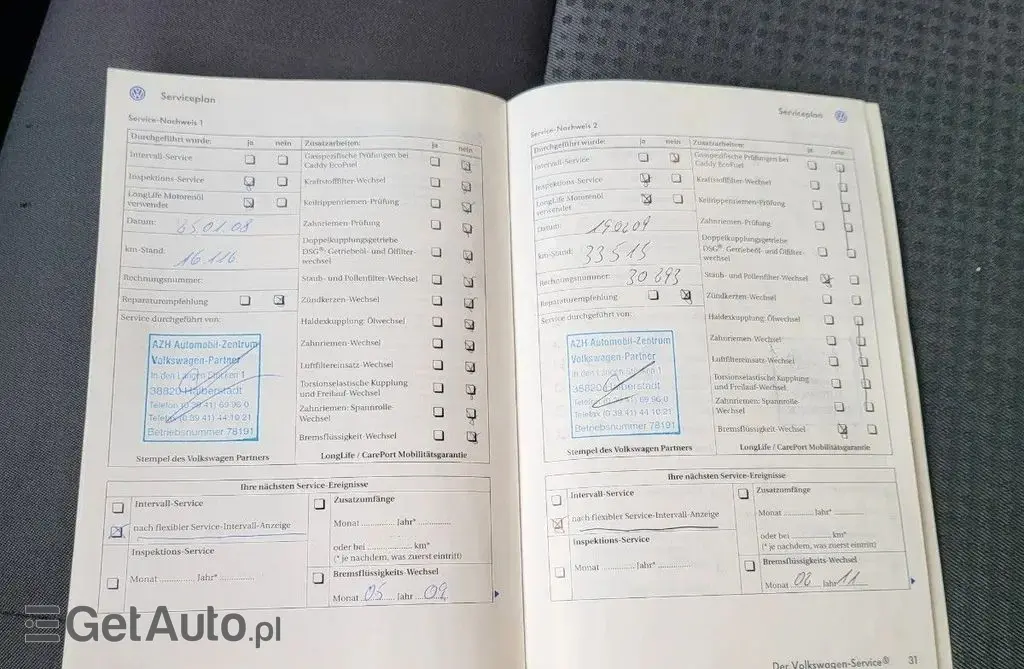 Serviceplan
Service-Nachweis 1
Durchgeführt wurde: ja nein
Intervall-Service
Inspektions-Service
LongLife Motorenöl
verwendet
Datum: 01.08
km-Stand: 16.116
Rechnungsnummer:
Reparaturempfehlung
Service durchgeführt von:
AZH Automobil-Zentrum
Volkswagen-Partner
In den Langen Stücken 1
38820 Halberstadt
Telefon (0 39 41) 69 96 0
Telefax (0 39 41) 44 10 21
Betriebsnummer 78191
Stempel des Volkswagen Partners
Zusatzarbeiten: ja nein
Gasspezifische Prüfungen bei
Caddy EcoFuel
Kraftstofffilter-Wechsel
Keilrippenriemen-Prüfung
Zahnriemen-Prüfung
Doppelkupplungsgetriebe
DSG®-Getriebeöl- und Ölfilter-
wechsel
Staub- und Pollenfilter-Wechsel
Zündkerzen-Wechsel
Haldexkupplung: Ölwechsel
Zahnriemen-Wechsel
Luftfiltereinsatz-Wechsel
Torsionselastische Kupplung
und Freilauf-Wechsel
Zahnriemen: Spannrolle-
Wechsel
Bremsflüssigkeit-Wechsel
LongLife / CarePort Mobilitätsgarantie
Ihre nächsten Service-Ereignisse
Intervall-Service
nach flexibler Service-Intervall-Anzeige
Inspektions-Service
Monat ............ Jahr* ............
Zusatzumfänge
Monat ............ Jahr* ............
oder bei ............ km*
(* je nachdem, was zuerst eintritt)
Bremsflüssigkeits-Wechsel
Monat 05 Jahr 09
Serviceplan
Service-Nachweis 2
Durchgeführt wurde: ja nein
Intervall-Service
Inspektions-Service
LongLife Motorenöl
verwendet
Datum: 190209
km-Stand: 33515
Rechnungsnummer: 30893
Reparaturempfehlung
Service durchgeführt von:
AZH Automobil-Zentrum
Volkswagen-Partner
In den Langen Stücken 1
38820 Halberstadt
Telefon (0 39 41) 69 96 0
Telefax (0 39 41) 44 10 21
Betriebsnummer 78191
Stempel des Volkswagen Partners
Zusatzarbeiten: ja nein
Gasspezifische Prüfungen bei
Caddy EcoFuel
Kraftstofffilter-Wechsel
Keilrippenriemen-Prüfung
Zahnriemen-Prüfung
Doppelkupplungsgetriebe
DSG®-Getriebeöl- und Ölfilter-
wechsel
Staub- und Pollenfilter-Wechsel
Zündkerzen-Wechsel
Haldexkupplung: Ölwechsel
Zahnriemen-Wechsel
Luftfiltereinsatz-Wechsel
Torsionselastische Kupplung
und Freilauf-Wechsel
Zahnriemen: Spannrolle-
Wechsel
Bremsflüssigkeit-Wechsel
LongLife / CarePort Mobilitätsgarantie
Ihre nächsten Service-Ereignisse
Intervall-Service
nach flexibler Service-Intervall-Anzeige
Inspektions-Service
Monat ............ Jahr* ............
Zusatzumfänge
Monat ............ Jahr* ............
oder bei ............ km*
(* je nachdem, was zuerst eintritt)
Bremsflüssigkeits-Wechsel
Monat 02 Jahr 11
Der Volkswagen-Service® 31
GetAuto.pl